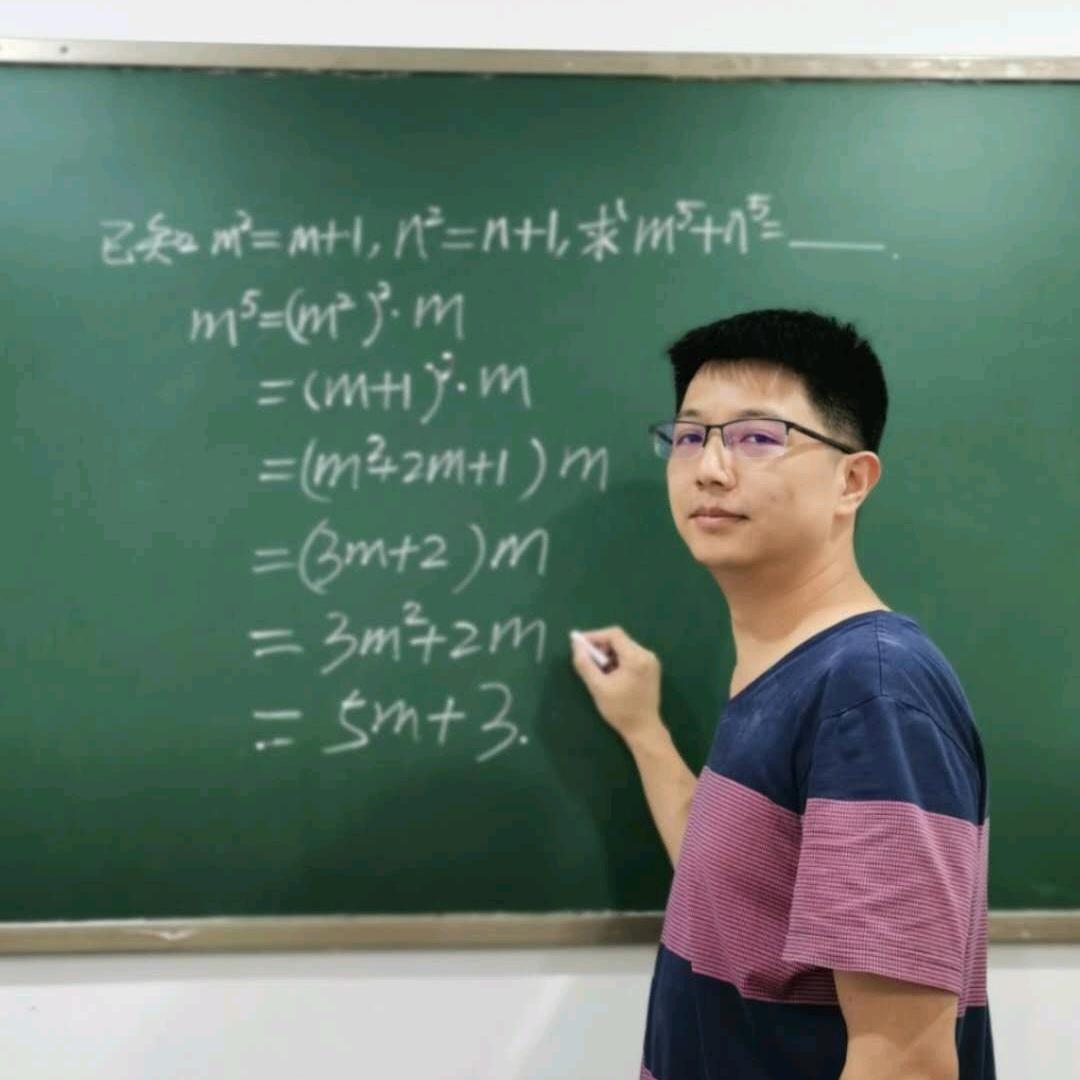 已知m²=m+1,n²=n+1,求m⁵+n⁵=____.
m⁵=(m²)²·m
=(m+1)²·m
=(m²+2m+1)m
=(3m+2)m
=3m²+2m
=5m+3.